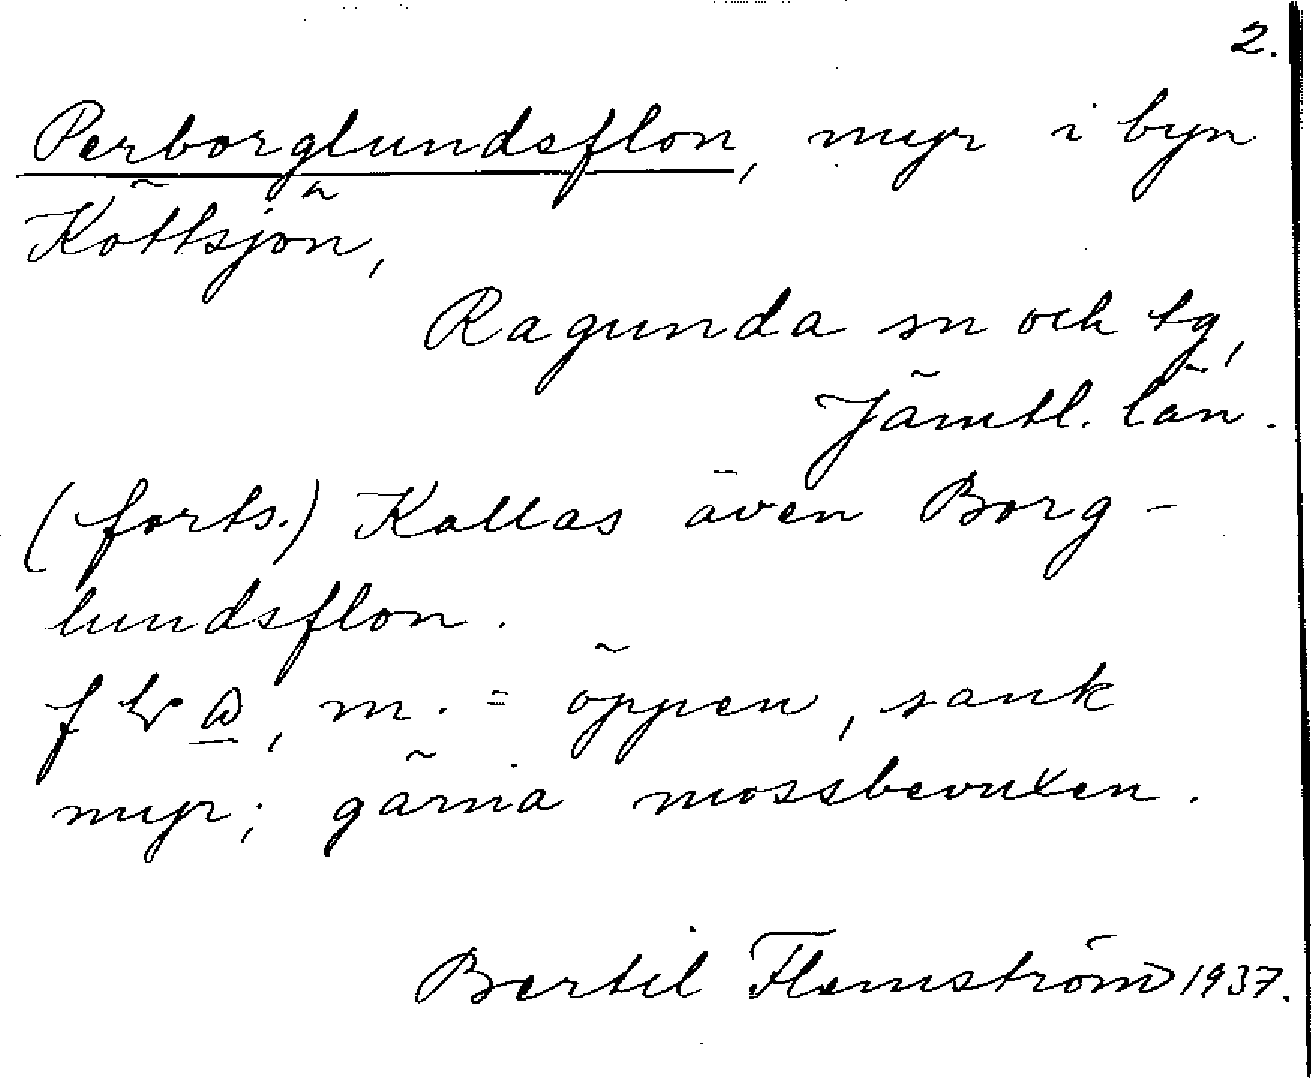 2.
Perborglundsflon, myr i byn
Köttsjön,
Ragunda sn och tg,
Jämtl. län.
(forts.) Kallas även Borg-
lundsflon.
, m. = öppen, sank
myr; gärna mossbevuxen.
Bertil Flemström 1937.